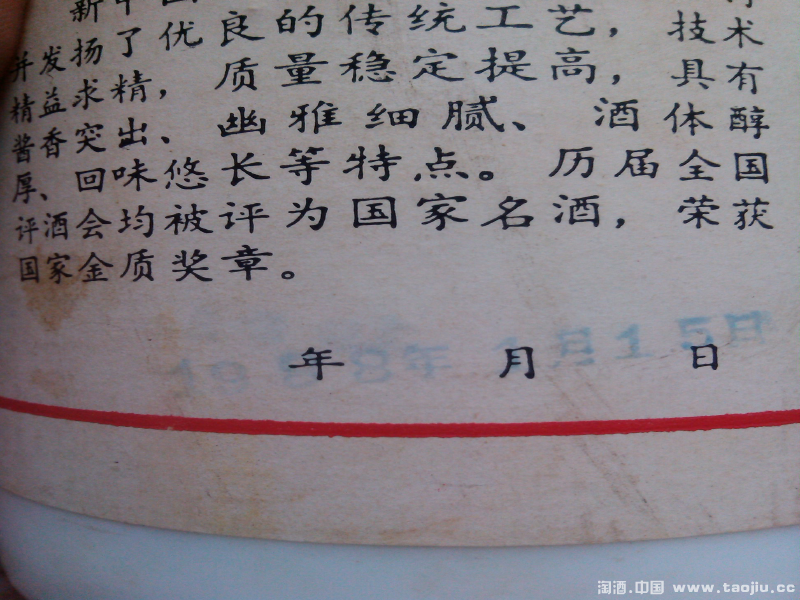 新中国
并发扬了优良的传统工艺，技术
精益求精，质量稳定提高，具有
酱香突出、幽雅细腻、酒体醇
厚、回味悠长等特点。历届全国
评酒会均被评为国家名酒，荣获
国家金质奖章。
年 月 日
1988年1月15日
淘酒.中国 www.taojiu.cc